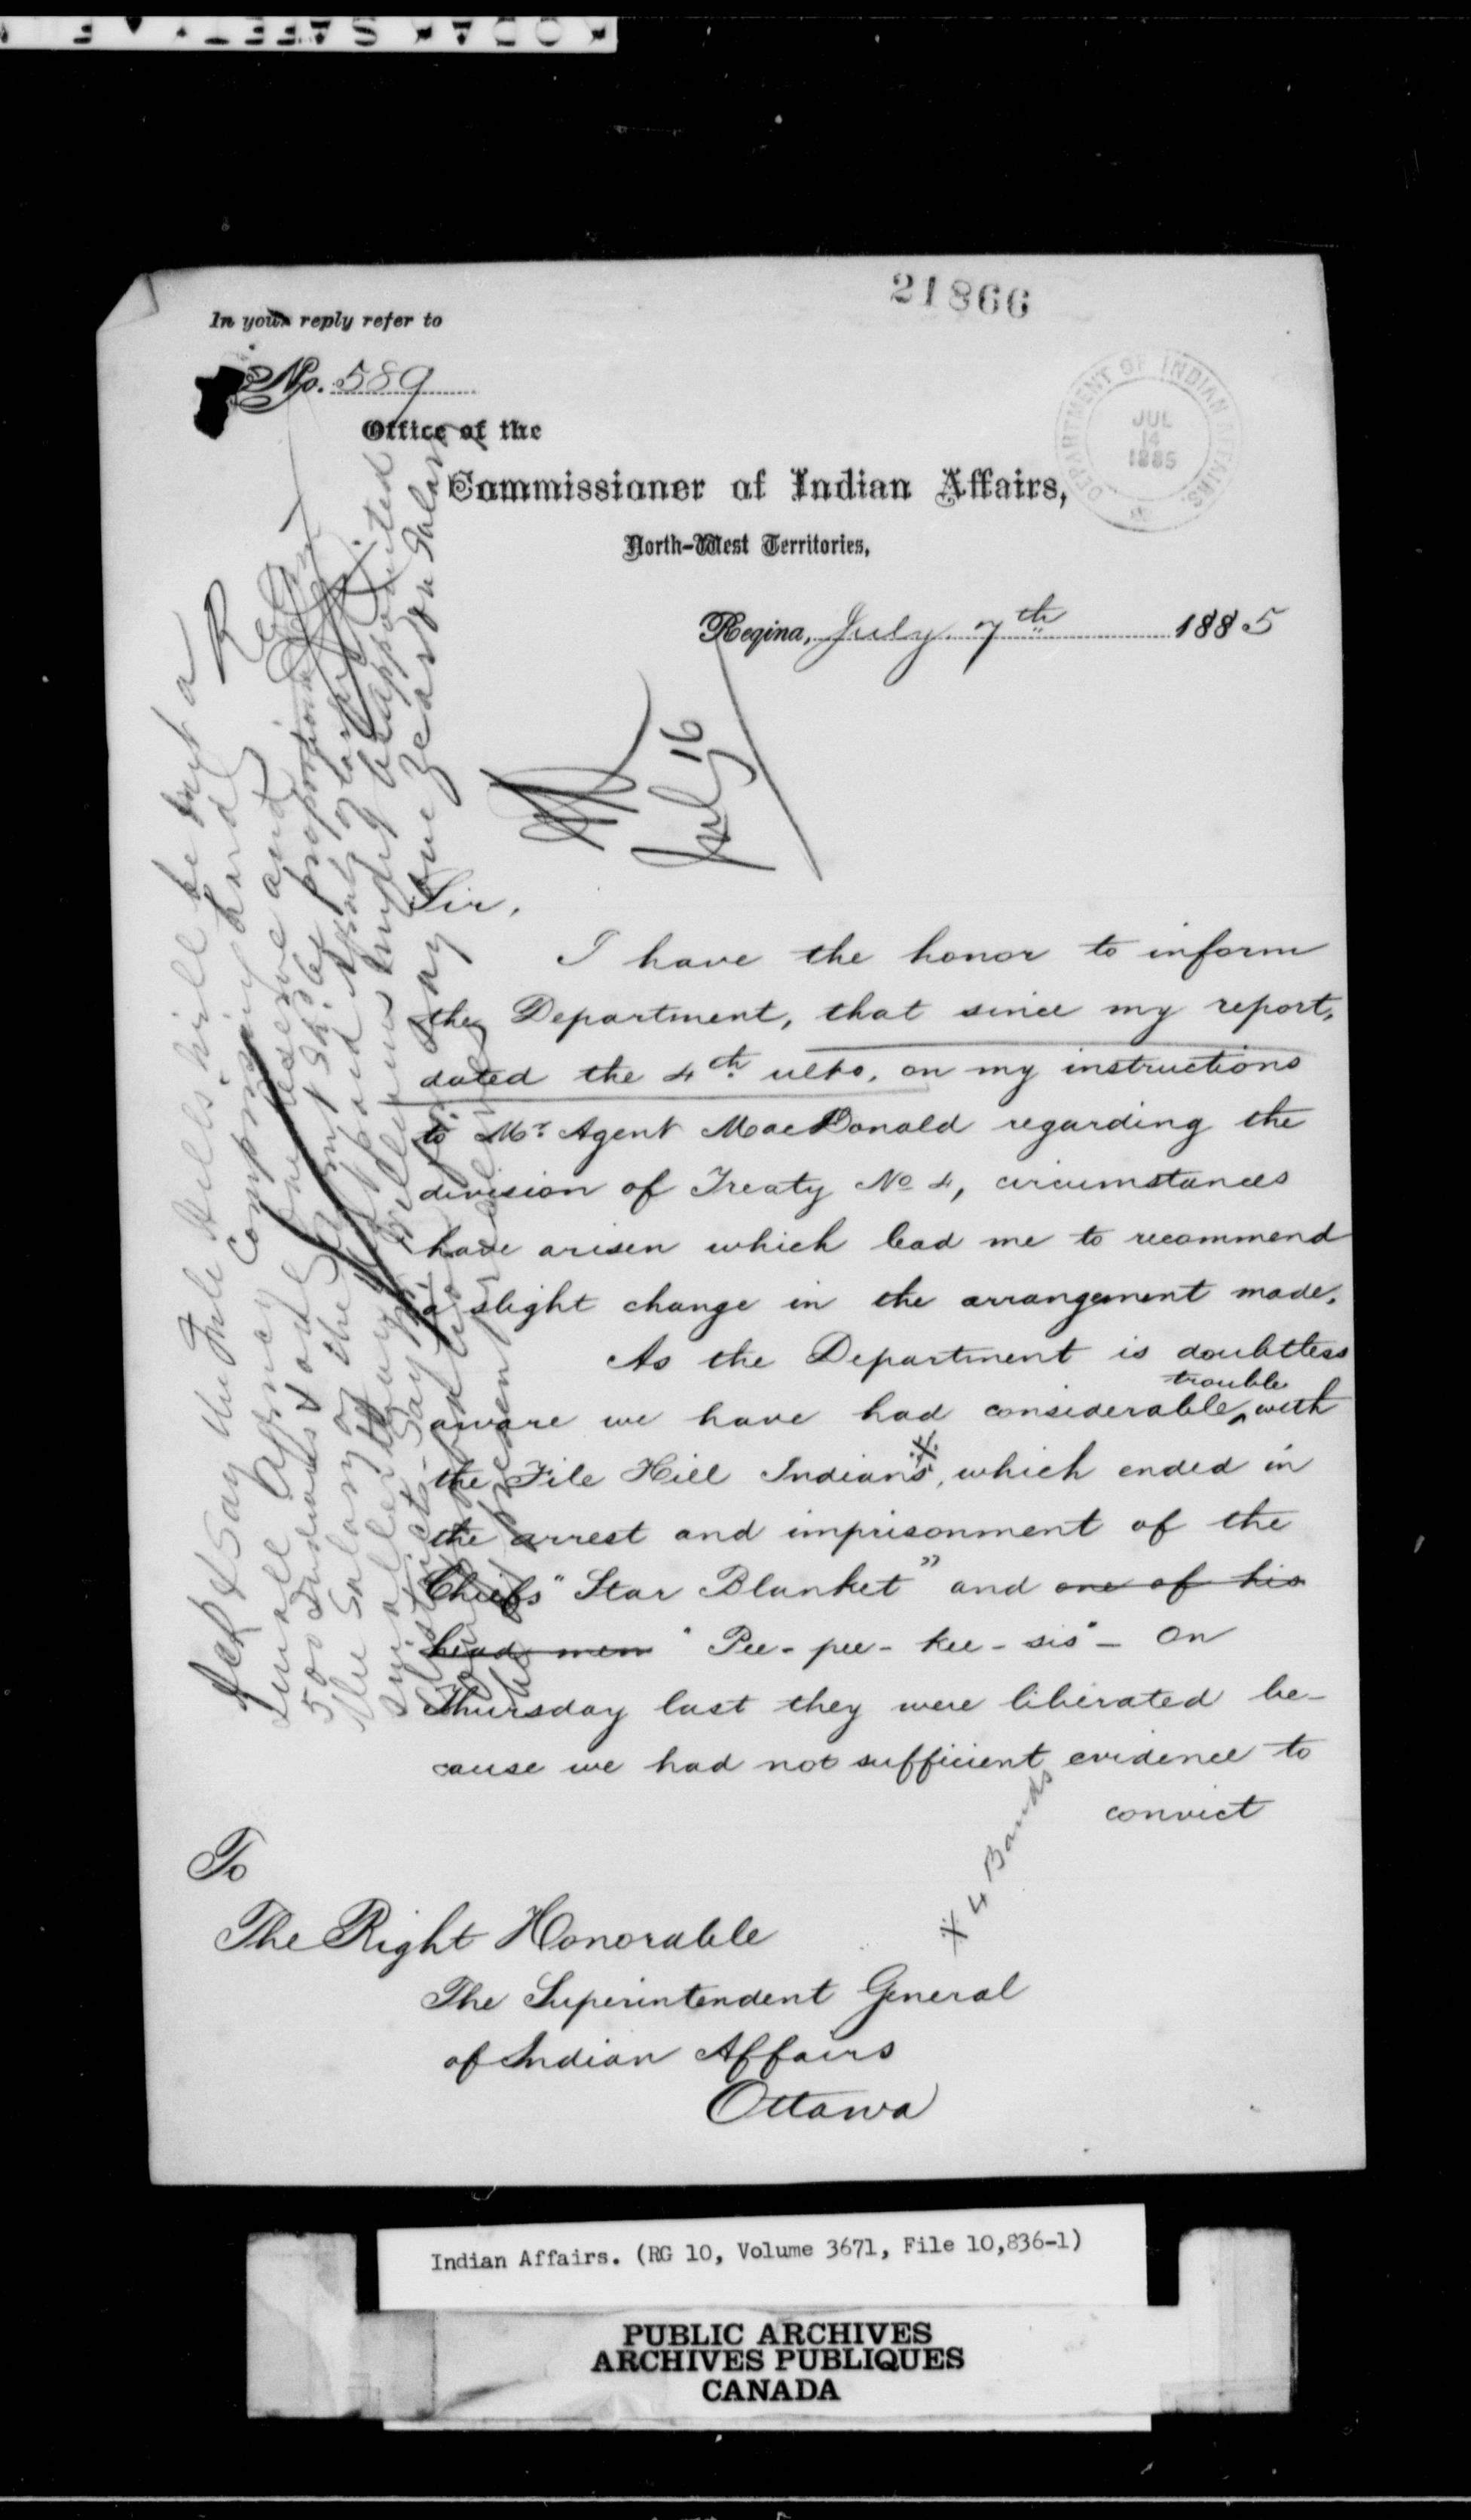 21866
In your reply refer to
No. 589
Office of the
Commissioner of Indian Affairs,
North-West Territories,
DEPARTMENT OF INDIAN AFFAIRS.
JUL
14
1885
Regina, July 7th 1885
July 16
Sir,
I have the honor to inform
the Department, that since my report,
dated the 4th ulto, on my instructions
to Mr. Agent MacDonald regarding the
division of Treaty No 4, circumstances
have arisen which lead me to recommend
a slight change in the arrangement made.
As the Department is doubtless
trouble
aware we have had considerable ‸ with
the File Hill Indians, which ended in
the arrest and imprisonment of the
Chiefs "Star Blanket" and one of his
head men "Pee-pee-kee-sis" - On
Thursday last they were liberated be-
cause we had not sufficient evidence to
convict
4 Bands
To
The Right Honorable
The Superintendent General
of Indian Affairs
Ottawa
Ack & Say the File Hills will be but a
small agency comprising hardly
500 Indians & only one reserve and
the salary of the Agent sh. be proportionally
Indian Affairs. (RG 10, Volume 3671, File 10,836-1)
PUBLIC ARCHIVES
ARCHIVES PUBLIQUES
CANADA